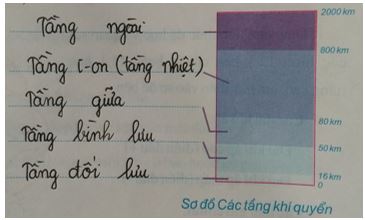 Tầng ngoài
2000 km
800 km
Tầng i-on (tầng nhiệt)
Tầng giữa
80 km
Tầng bình lưu
50 km
Tầng đối lưu
16 km
0
Sơ đồ Các tầng khí quyển